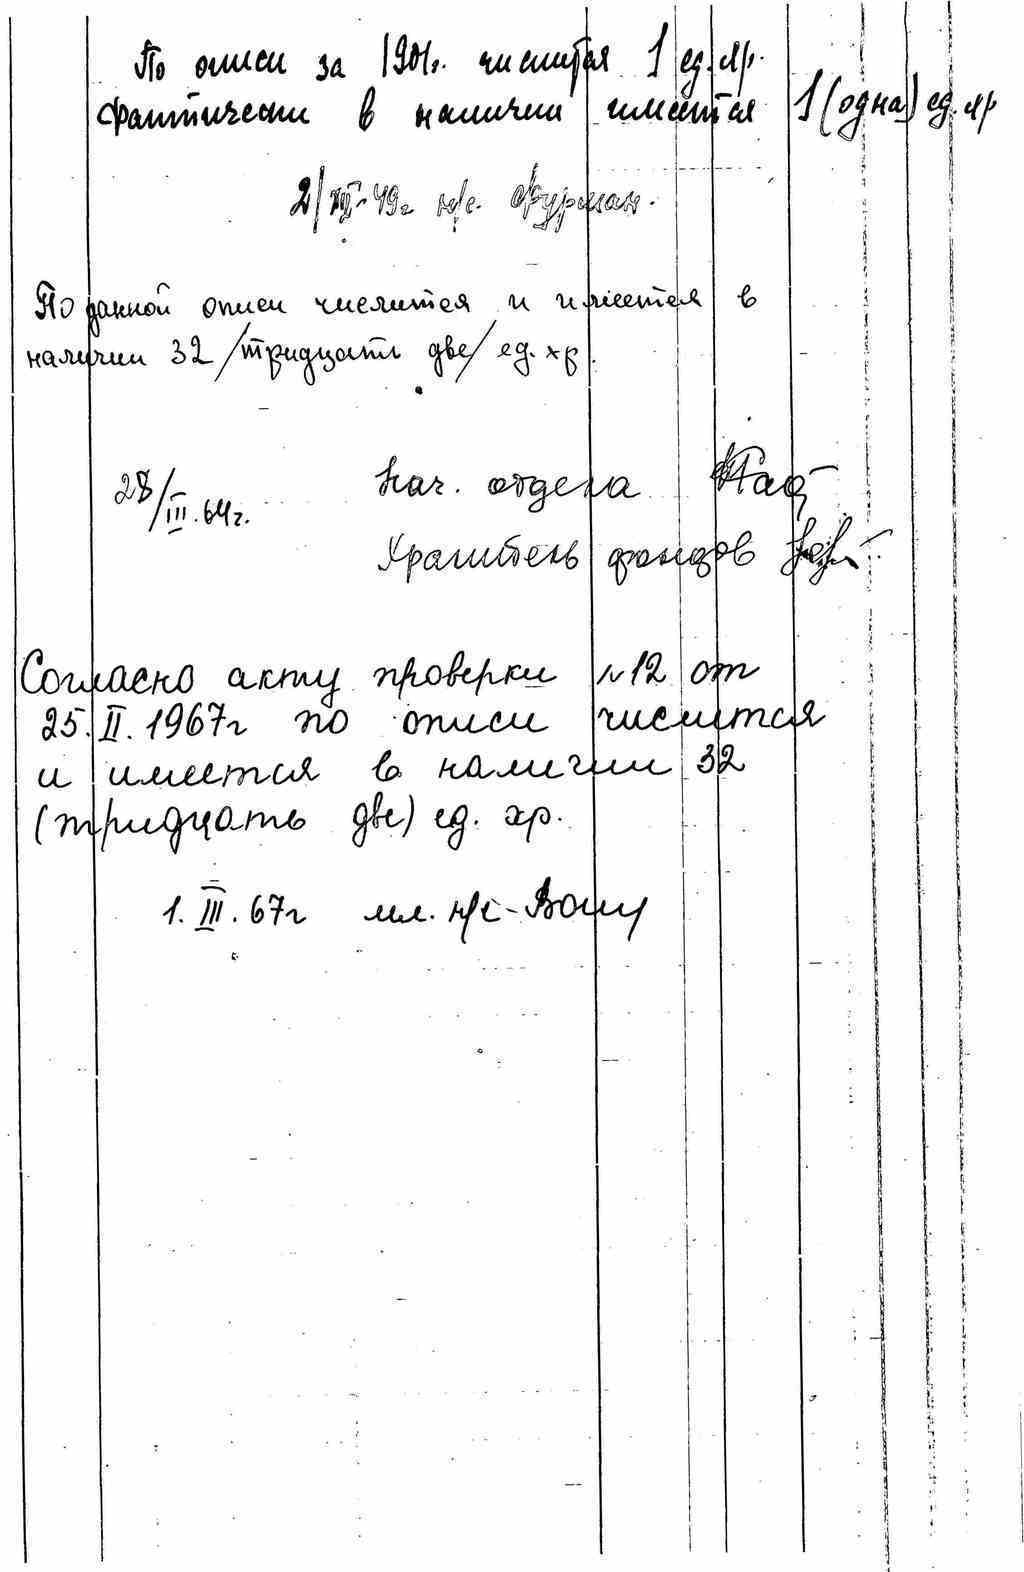 По описи за 1901г. числится 1 ед. хр.
Фактически в наличии имеется 1 (одна) ед. хр
2/XII-49г н/с. Фурман.
По данной описи числится и имеется в
наличии 32 /тридцать две/ ед. хр.
28/III.64г. Нач. отдела
Хранитель фондов
Согласно акту проверки №12 от
25.II.1967г по описи числится
и имеется в наличии 32
(тридцать две) ед. хр.
1.III.67г мл. н/с -